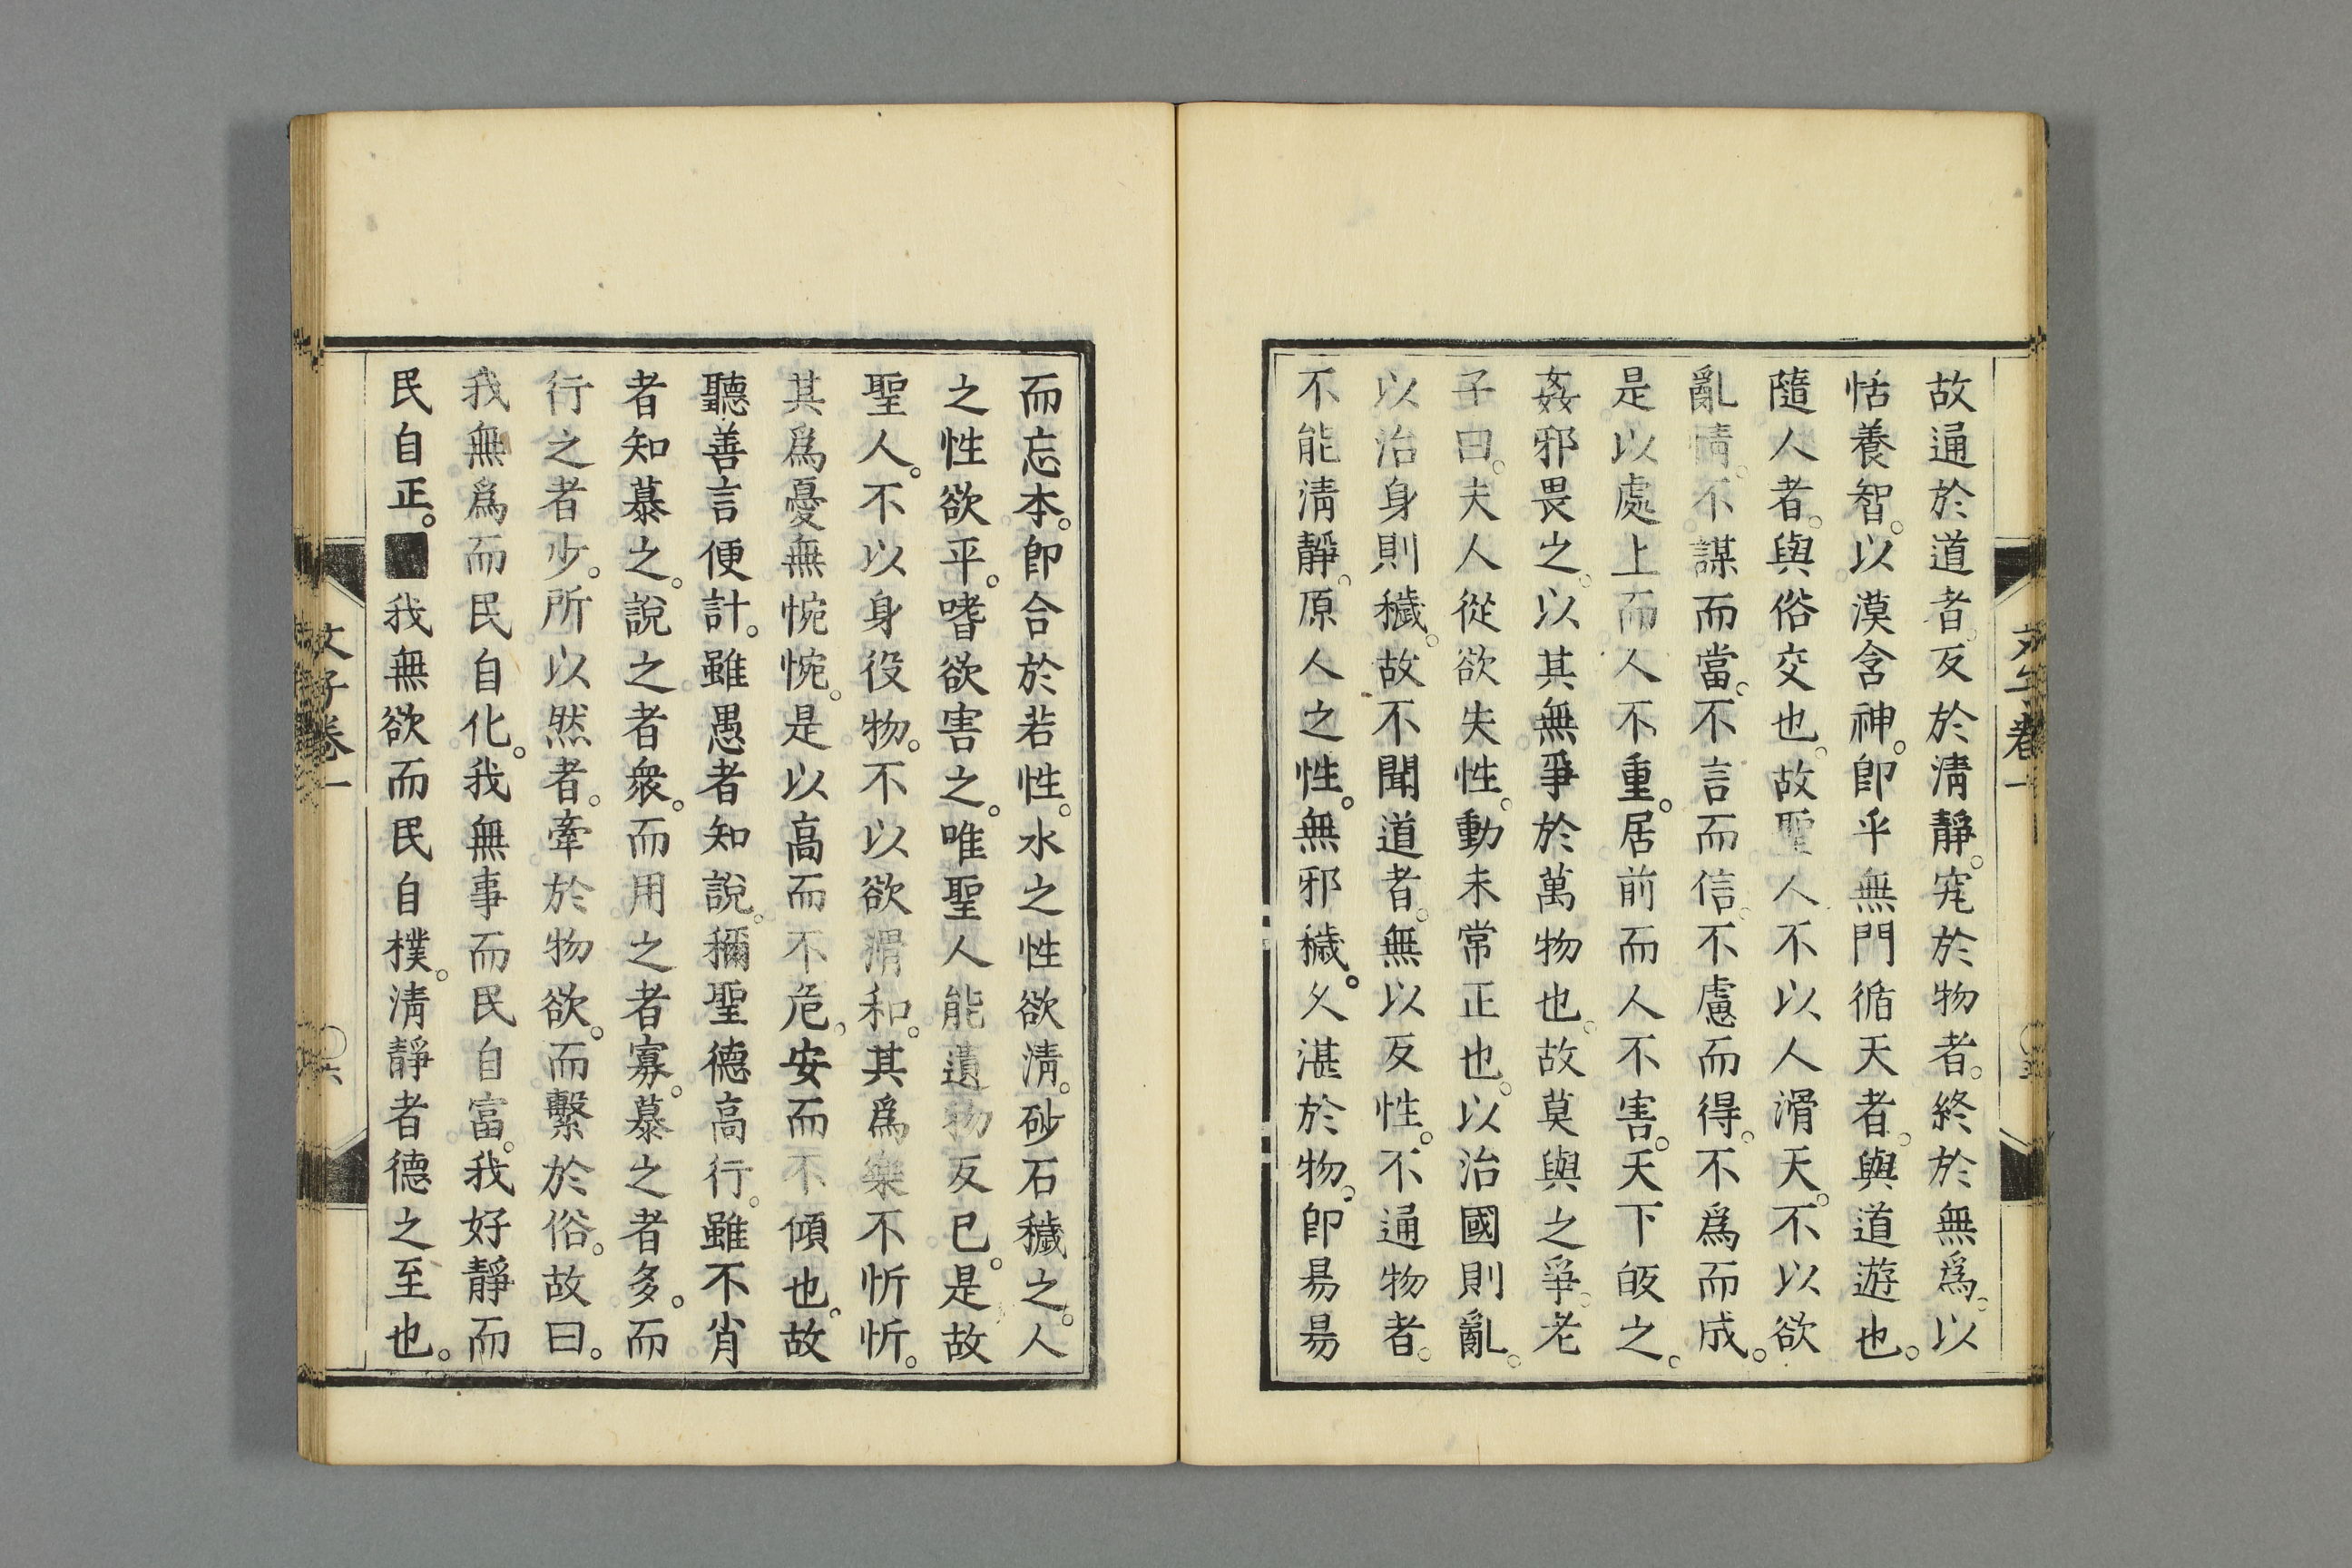 故通於道者。反於淸靜。究於物者。終於無爲。以
恬養智。以漠含神。卽乎無門循天者。與道遊也。
隨人者。與俗交也。故聖人不以人滑天。不以欲
亂情。不謀而當。不言而信。不慮而得。不爲而成。
是以處上而人不重。居前而人不害。天下皈之。
姦邪畏之。以其無爭於萬物也。故莫與之爭。老
子曰。夫人從欲失性。動未常正也。以治國則亂。
以治身則穢。故不聞道者。無以反性。不通物者。
不能淸靜。原人之性。無邪穢。久湛於物。卽昜昜
而忘本。卽合於若性。水之性欲淸。砂石穢之。人
之性欲平。嗜欲害之。唯聖人能遺物反己。是故
聖人。不以身役物。不以欲滑和。其爲樂不忻忻。
其爲憂無惋惋。是以高而不危。安而不傾也。故
聽善言便計。雖愚者知說。稱聖德高行。雖不肖
者知慕之。說之者衆。而用之者寡。慕之者多。而
行之者少。所以然者。牽於物欲。而繫於俗。故曰。
我無爲而民自化。我無事而民自富。我好靜而
民自正。■我無欲而民自樸。淸靜者德之至也。
文子卷一
〇六